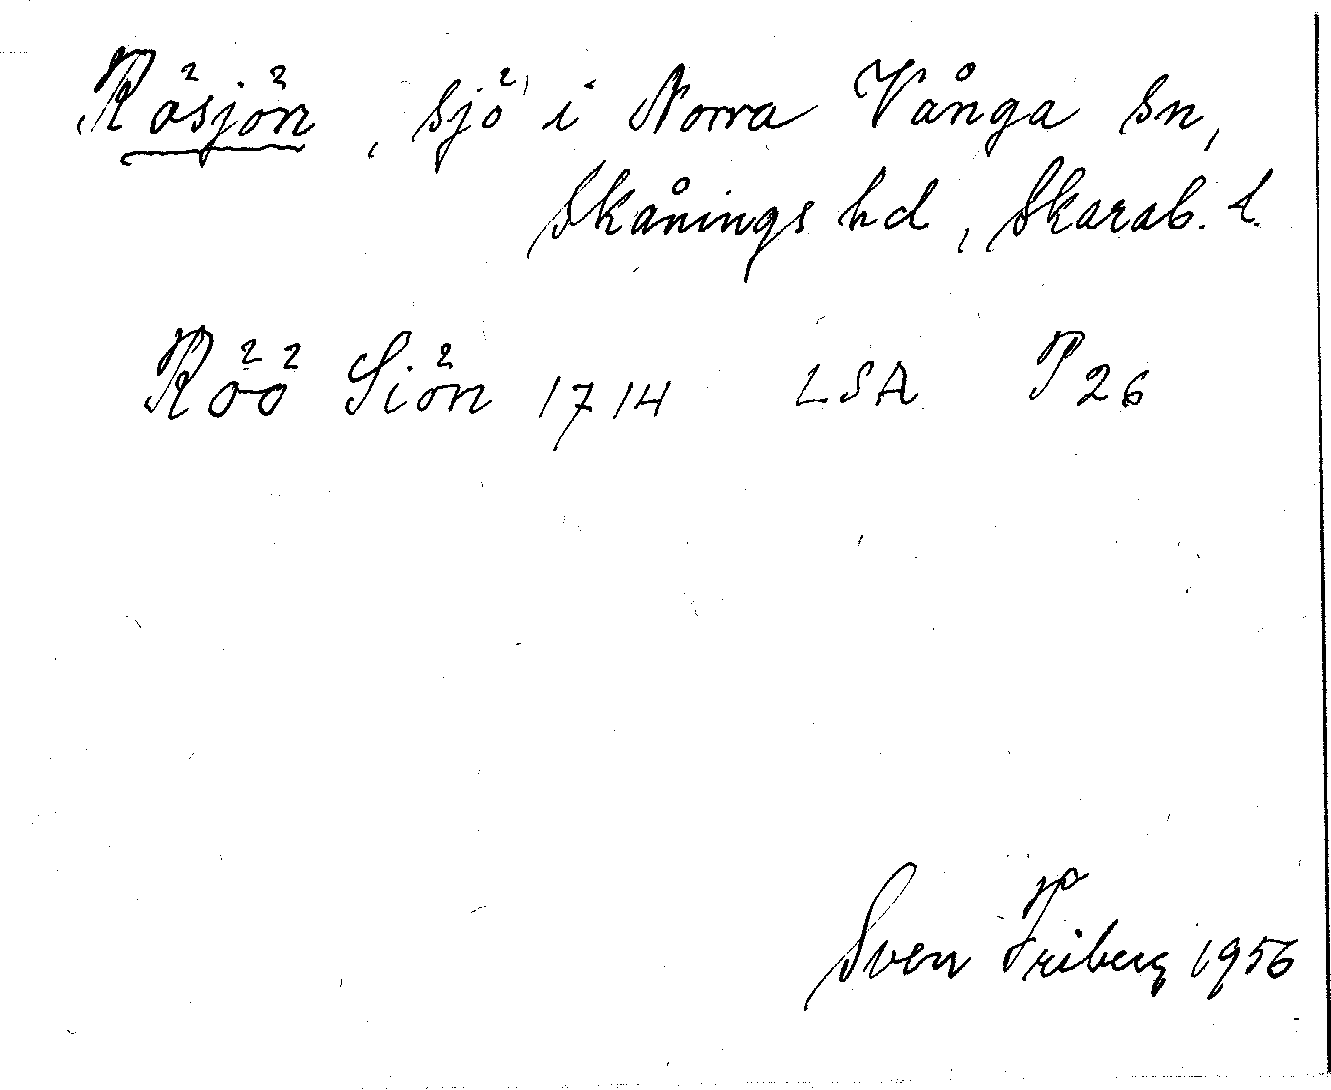 Rösjön, sjö i Norra Vånga sn,
Skånings hd, Skarab. l.
Röö Siön 1714 LSA P 26
Sven Friberg 1956